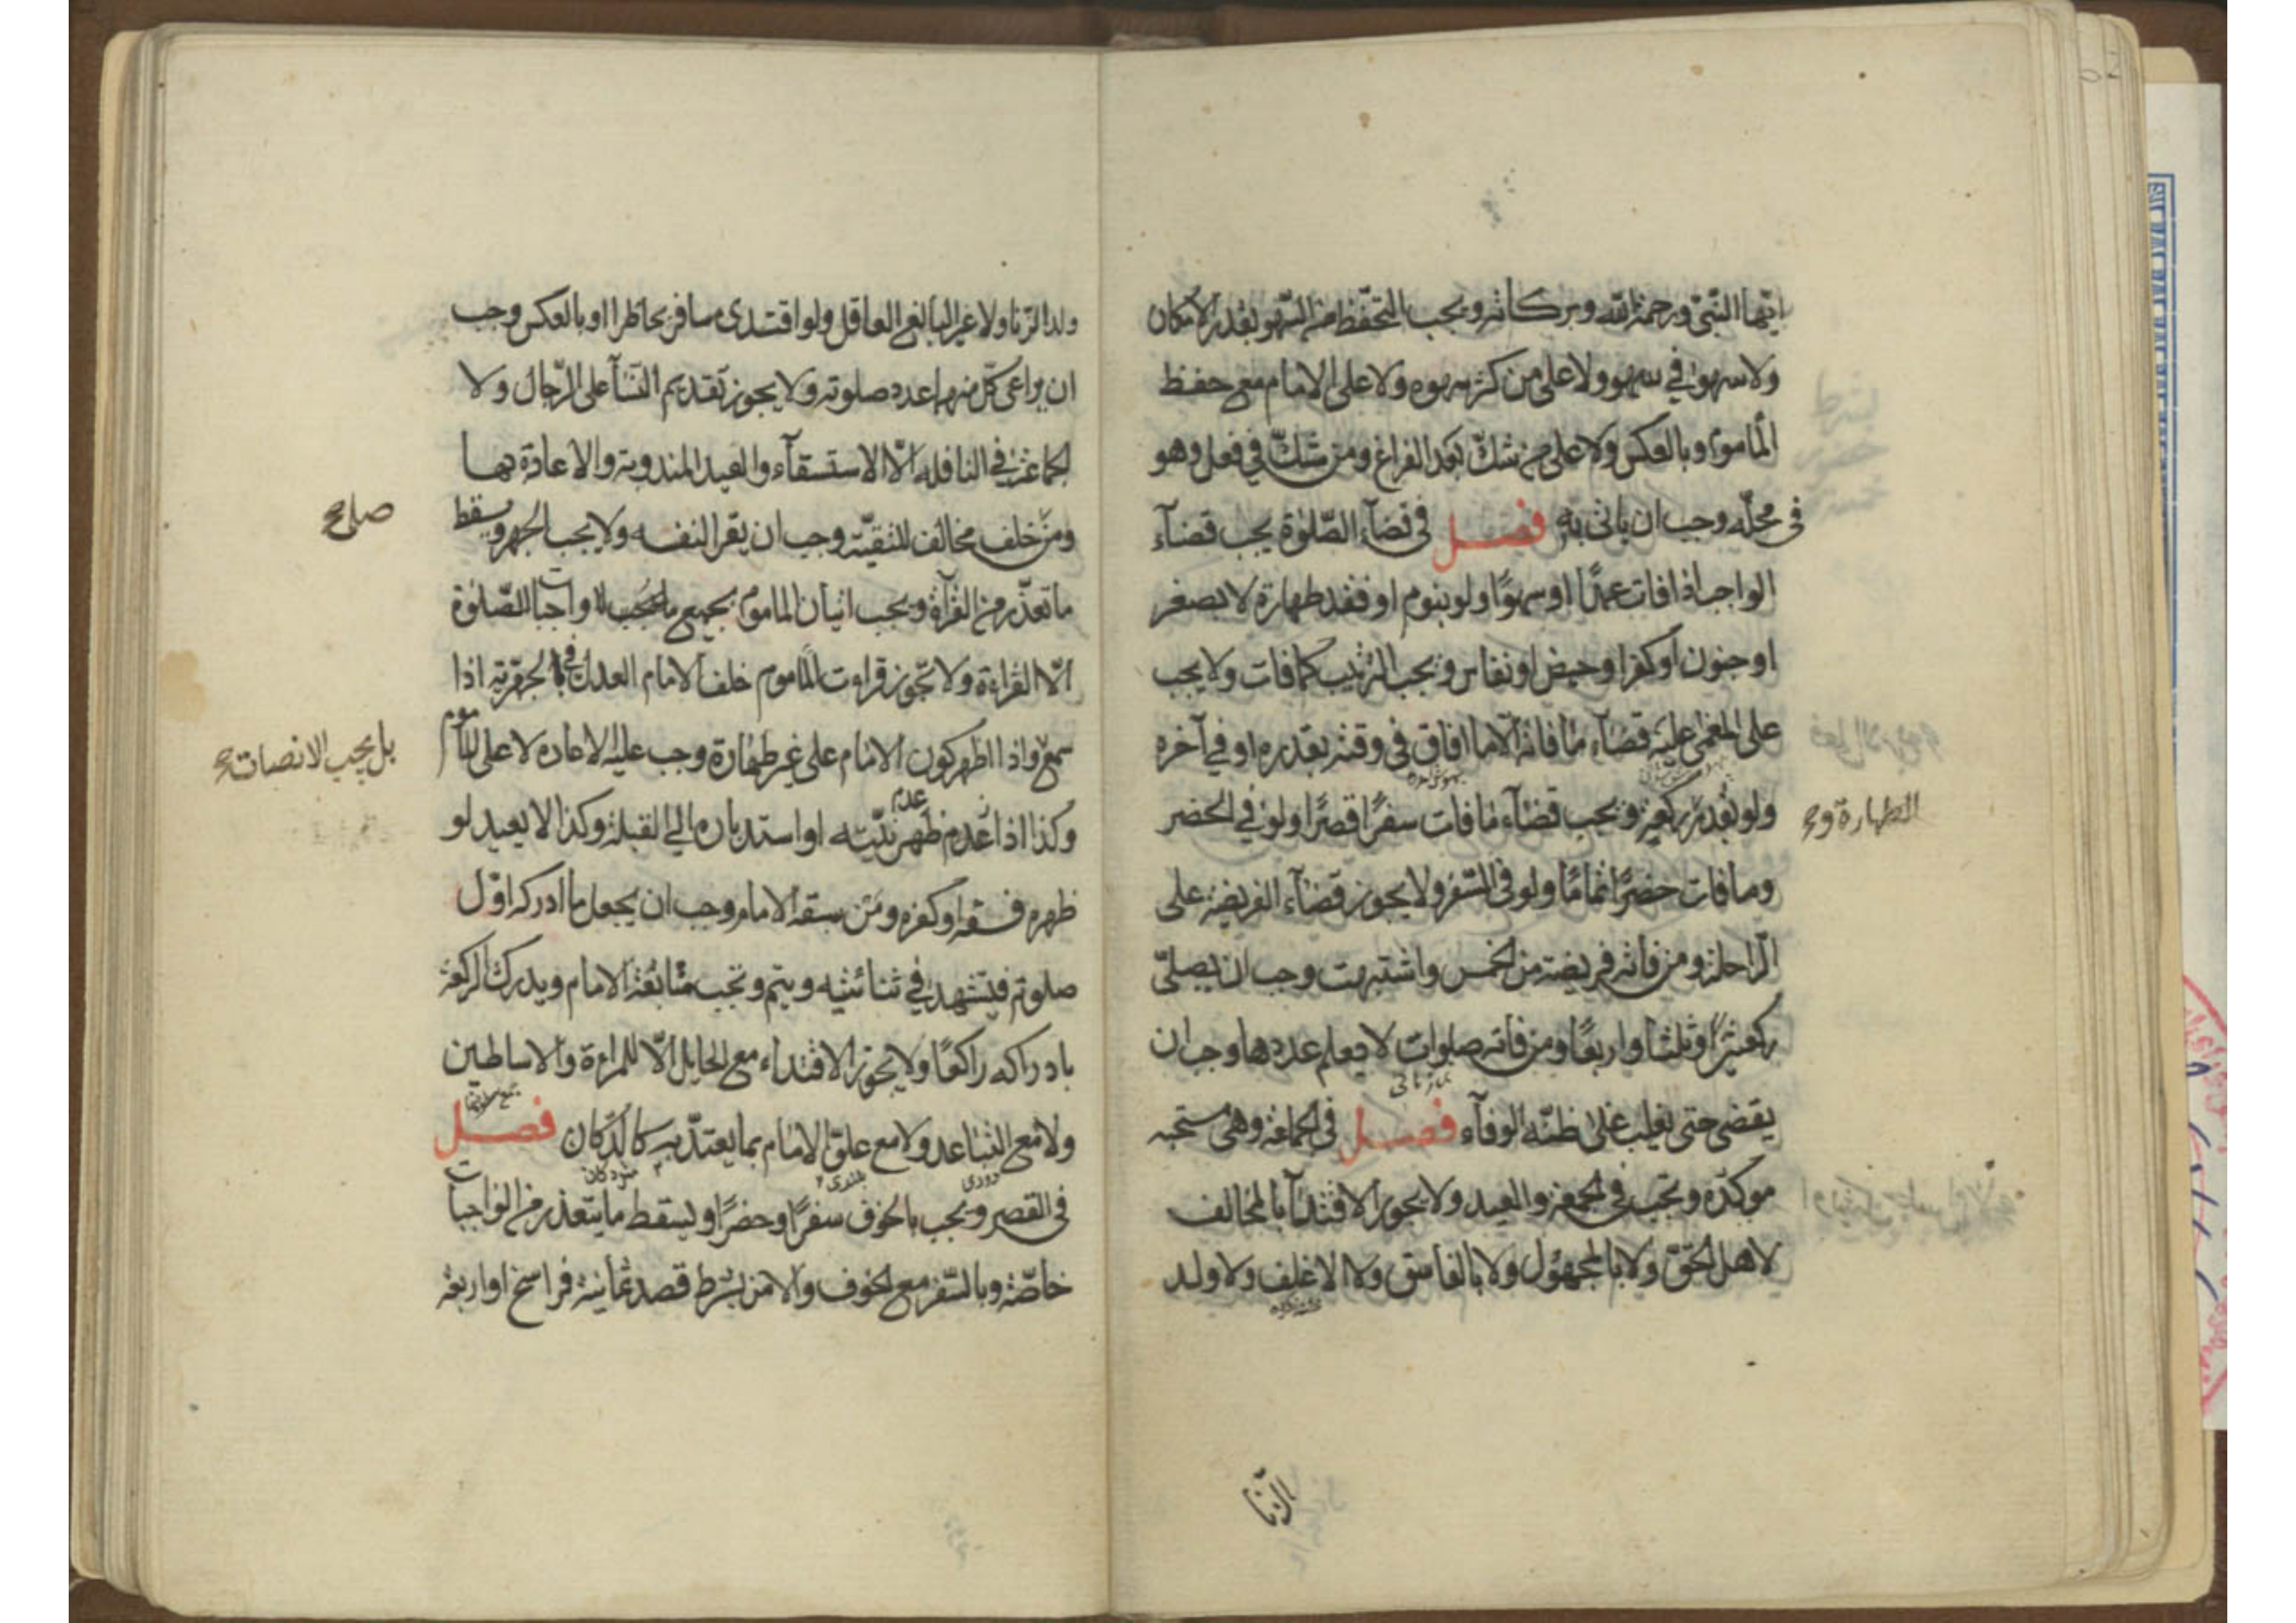 ايّها النّبيّ ورحمة اللّه وبركاته ويجب التحفّظ من السّهو بقدر الامكان
ولا سهو في سهو ولا على من كثر سهوه ولا على الامام مع حفظ
المأموم وبالعكس ولا على من شكّ بعد الفراغ ومن شكّ في فعل وهو
في محلّه وجب ان ياتى به فصل في قضآء الصّلوة يجب قضآء
الواجب اذا فات عمدًا او سهوًا ولو بنوم او فقد طهارة لا بصغر
او جنون او كفر او حيض او نفاس ويجب الترتيب كما فات ولا يجب
على المغمى عليه قضآء ما فاته الّا ما افاق في وقته بقدره او في آخره
الطهارة و
ولو بقدر ركعة ويجب قضآء ما فات سفرًا قصرًا ولو في الحضر
وما فات حضرًا تمامًا ولو في السّفر ولا يجوز قضآء الفريضة على
الرّاحلة ومن فاته فريضة من الخمس واشتبهت وجب ان يصلّى
ركعتين وثلثا واربعًا ومن فاته صلوات لا يعلم عددها وجب ان
يقضى حتى يغلب على ظنّه الوفآء فصل في الجماعة وهى مستحبه
موكّده وتجب في الجمعة والعيد ولا يجوز الاقتدآ بالمخالف
لاهل الحقّ ولا بالمجهول ولا بالفاسق ولا الاغلف ولا ولد
الزّنا
ولد الزّنا ولا غير البالغ العاقل ولو اقتدى مسافر بحاظر او بالعكس وجب
ان يراعى كلّ منهما عدد صلوته ولا يجوز تقديم النّسآ على الرّجال ولا
الجماعة في النافله الّا الاستسقآء والعيد المندوبة والاعادة بها
صلى
ومن خلف مخالف للتقيّة وجب ان يقرا لنفسه ولا يجب الجهر ويسقط
ما تعذّر من القرآة ويجب اتيان الماموم بجميع ما يجب واجبات للصّلوة
الّا القراءة ولا تجوز قراءت الماموم خلف الامام العدل في الجهرية اذا
بل يجب الانصات
سمع واذا اظهر كون الامام على غير طهارة وجب عليه الاعاده لا على الماموم
وكذا اذا عدم ظهر نيّته عدم او استدباره الى القبلة وكذا لا يعيد لو
ظهر فسقه او كفره ومن سبقه الامام وجب ان يجعل ما ادركه اوّل
صلوته فيتشهد في ثنائيته ويتم وتجب متابعة الامام ويدرك الركعة
بادراكه راكعًا ولا يجوز الاقتداء مع الحايل الّا للمراءة والاساطين
ولا مع التباعد ولا مع علوّ الامام بما يعتدّ به كالدّكان فصل
في القصر ويجب بالخوف سفرًا وحضرًا ويسقط ما يتعذر من الواجبات
خاصّة وبالسّفر مع الخوف والامن بشرط قصد ثمانية فراسخ او اربعة